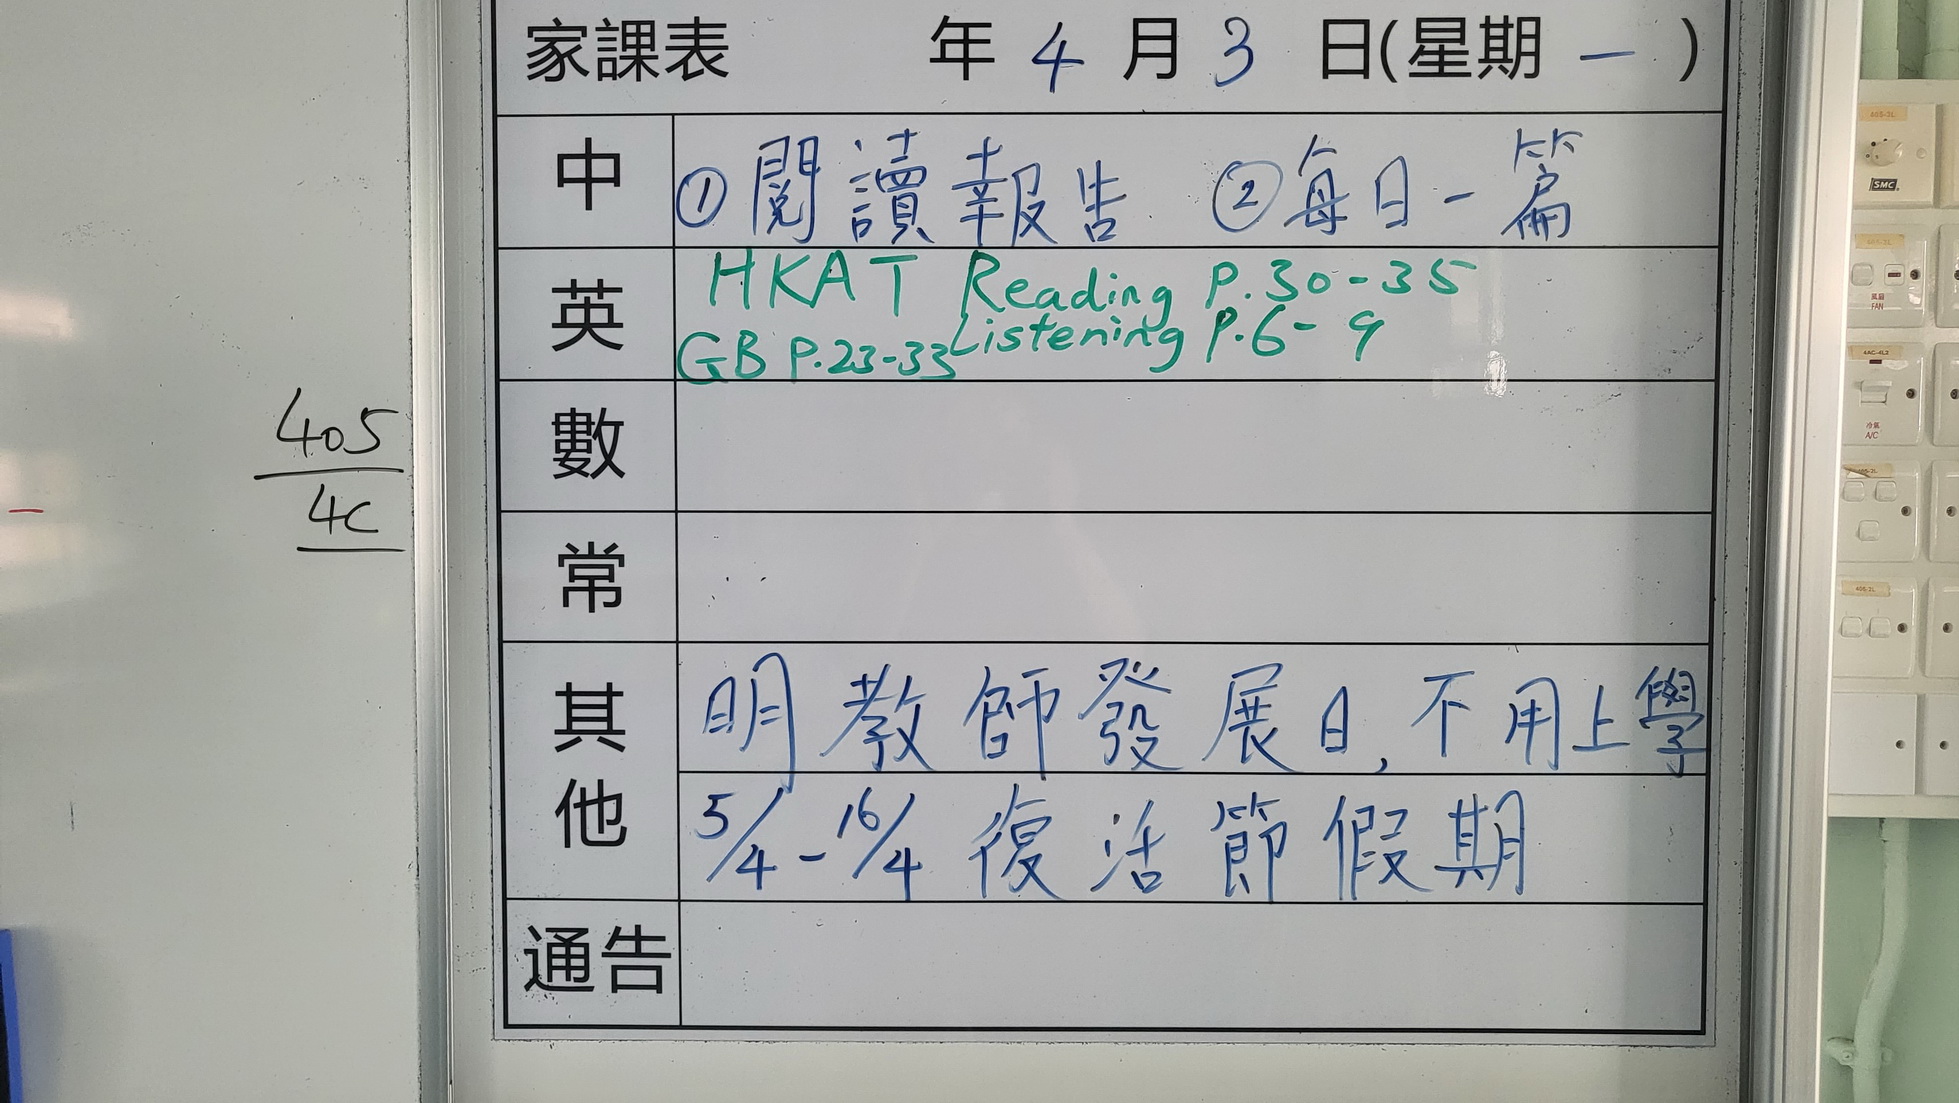 家課表 年 4 月 3 日(星期 一 )
中 ①閱讀報告 ②每日一篇
英 HKAT Reading P.30-35
GB P.23-33 Listening P.6-9
數
常
其他 明教師發展日,不用上學
5/4-16/4 復活節假期
通告
405
4C
405-2L
SMC
風扇
FAN
4AC-4L2
冷氣
A/C
405-2L